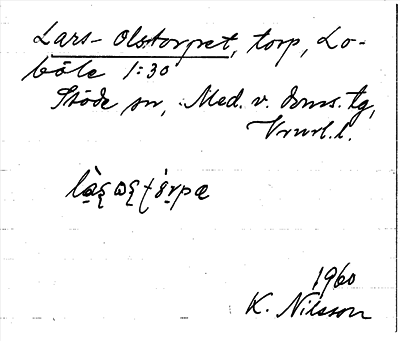 Lars-Olstorpet, torp, Lo-
böle 1:30
Stöde sn, Med. v. doms. tg,
Vnrl. l.
1960
K. Nilsson